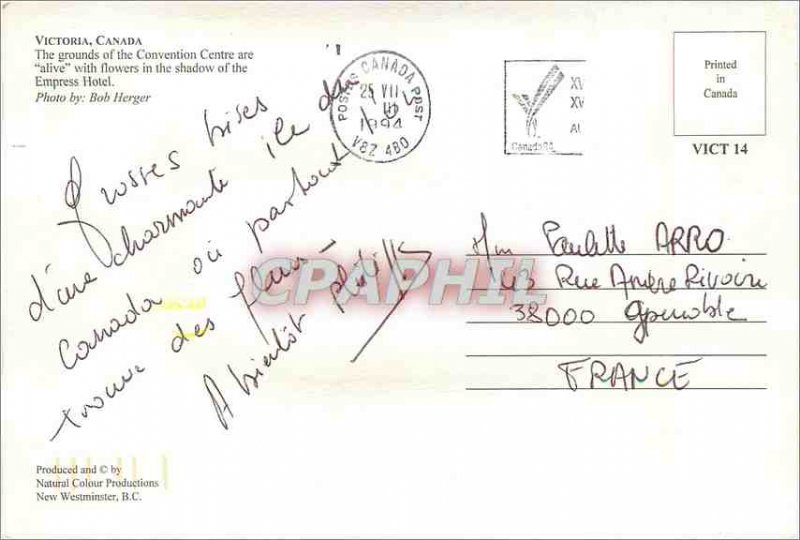 VICTORIA, CANADA
The grounds of the Convention Centre are
"alive" with flowers in the shadow of the
Empress Hotel.
Photo by: Bob Herger
POSTES CANADA POST
25 VII
1994
V8Z 4B0
XV
XV
Canada
Printed
in
Canada
VICT 14
Grosses bises
d'une charmante île du
Canada où partout
trouve des fleurs
A bientôt
Paulette ARRO
Rue André Rivoire
38000 Grenoble
FRANCE
CPAPHIL
Produced and © by
Natural Colour Productions
New Westminster, B.C.